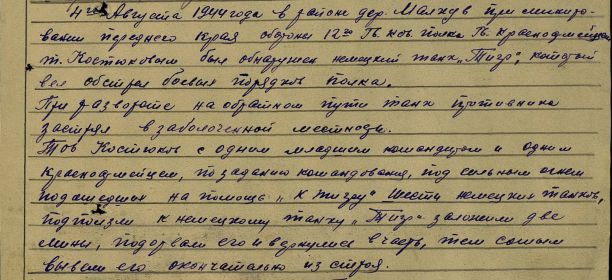 4го Августа 1944 года в районе дер. Малхув при минировании переднего края обороны 12го Гв. кав. полка Гв. Красноармейцем
т. Костюковым был обнаружен немецкий танк „Тигр", который
вел обстрел боевых порядков полка.
При развороте на обратном пути танк противника
застрял в заболоченной местности.
Тов Костюков с одним младшим командиром и одним
красноармейцем, по заданию командования, под сильным огнем
подошедших на помощь „к тигру" шести немецких танков,
подползли к немецкому танку „Тигр" заложили две
мины, подорвали его и вернулись в часть, тем самым
вывели его окончательно из строя.